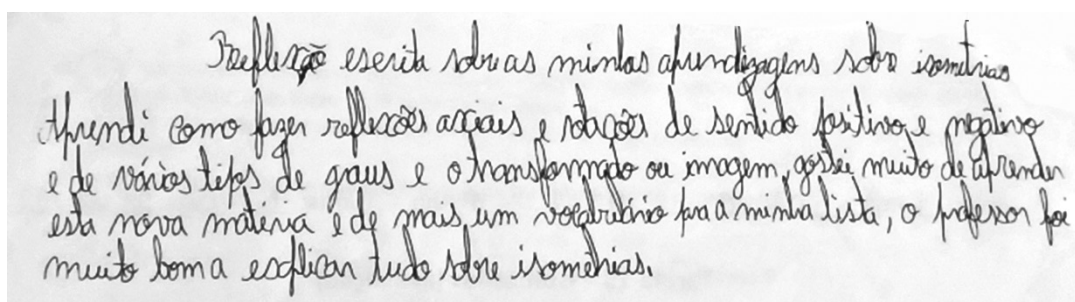 Reflexão escrita sobre as minhas aprendizagens sobre isometrias
Aprendi como fazer reflexões axiais e rotações de sentido positivo e negativo
e de vários tipos de graus e o transformado ou imagem, gostei muito de aprender
esta nova matéria e de mais um vocabulário para a minha lista, o professor foi
muito bom a explicar tudo sobre isometrias.